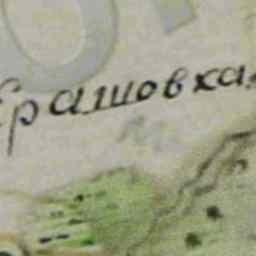 Ерашовка